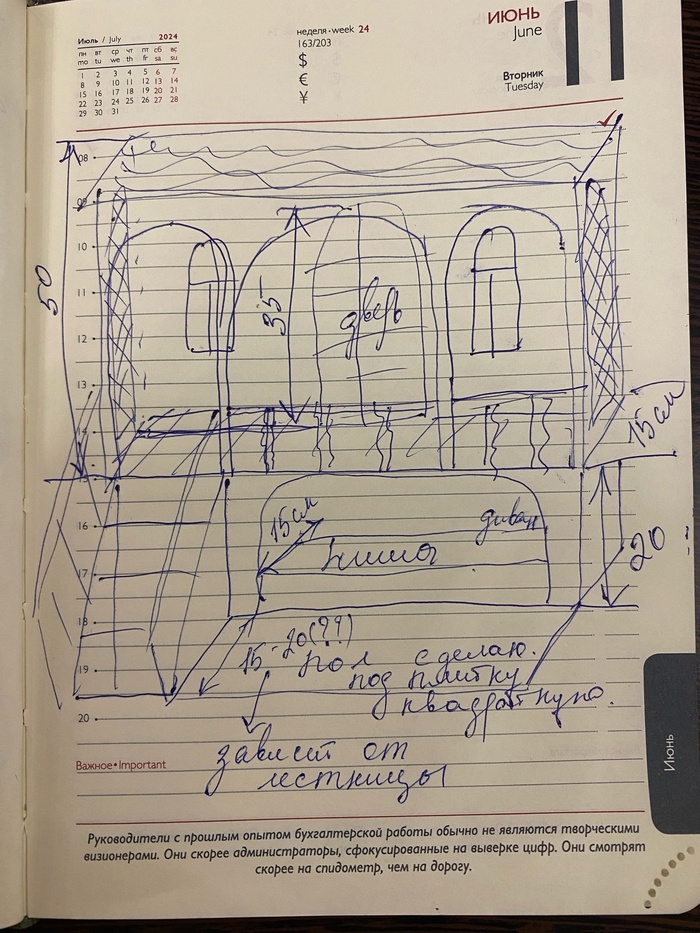 Июль / July 2024
пн вт ср чт пт сб вс
mo tu we th fr sa su
1 2 3 4 5 6 7
8 9 10 11 12 13 14
15 16 17 18 19 20 21
22 23 24 25 26 27 28
29 30 31
неделя•week 24
163/203
$
€
¥
ИЮНЬ
June
Вторник
Tuesday
11
08
09
10
11
12
13
15
16
17
18
19
20
50
35
дверь
15 см
20
15 см
диван
ниша
15-20(??)
пол сделаю.
под плитку
квадратную.
зависит от
лестницы
Важное•Important
Июнь
Руководители с прошлым опытом бухгалтерской работы обычно не являются творческими
визионерами. Они скорее администраторы, сфокусированные на выверке цифр. Они смотрят
скорее на спидометр, чем на дорогу.